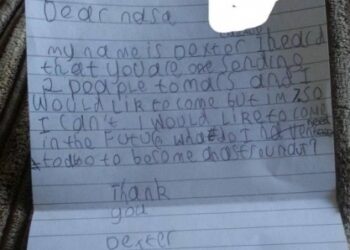 Dear nasa
my name is Dexter I heard
that you are sending
2 people to mars and I
would like to come but im 7 so
I can't I would like to come
in the future what do I need
to do to become an astrounaut?
Thank
you
Dexter